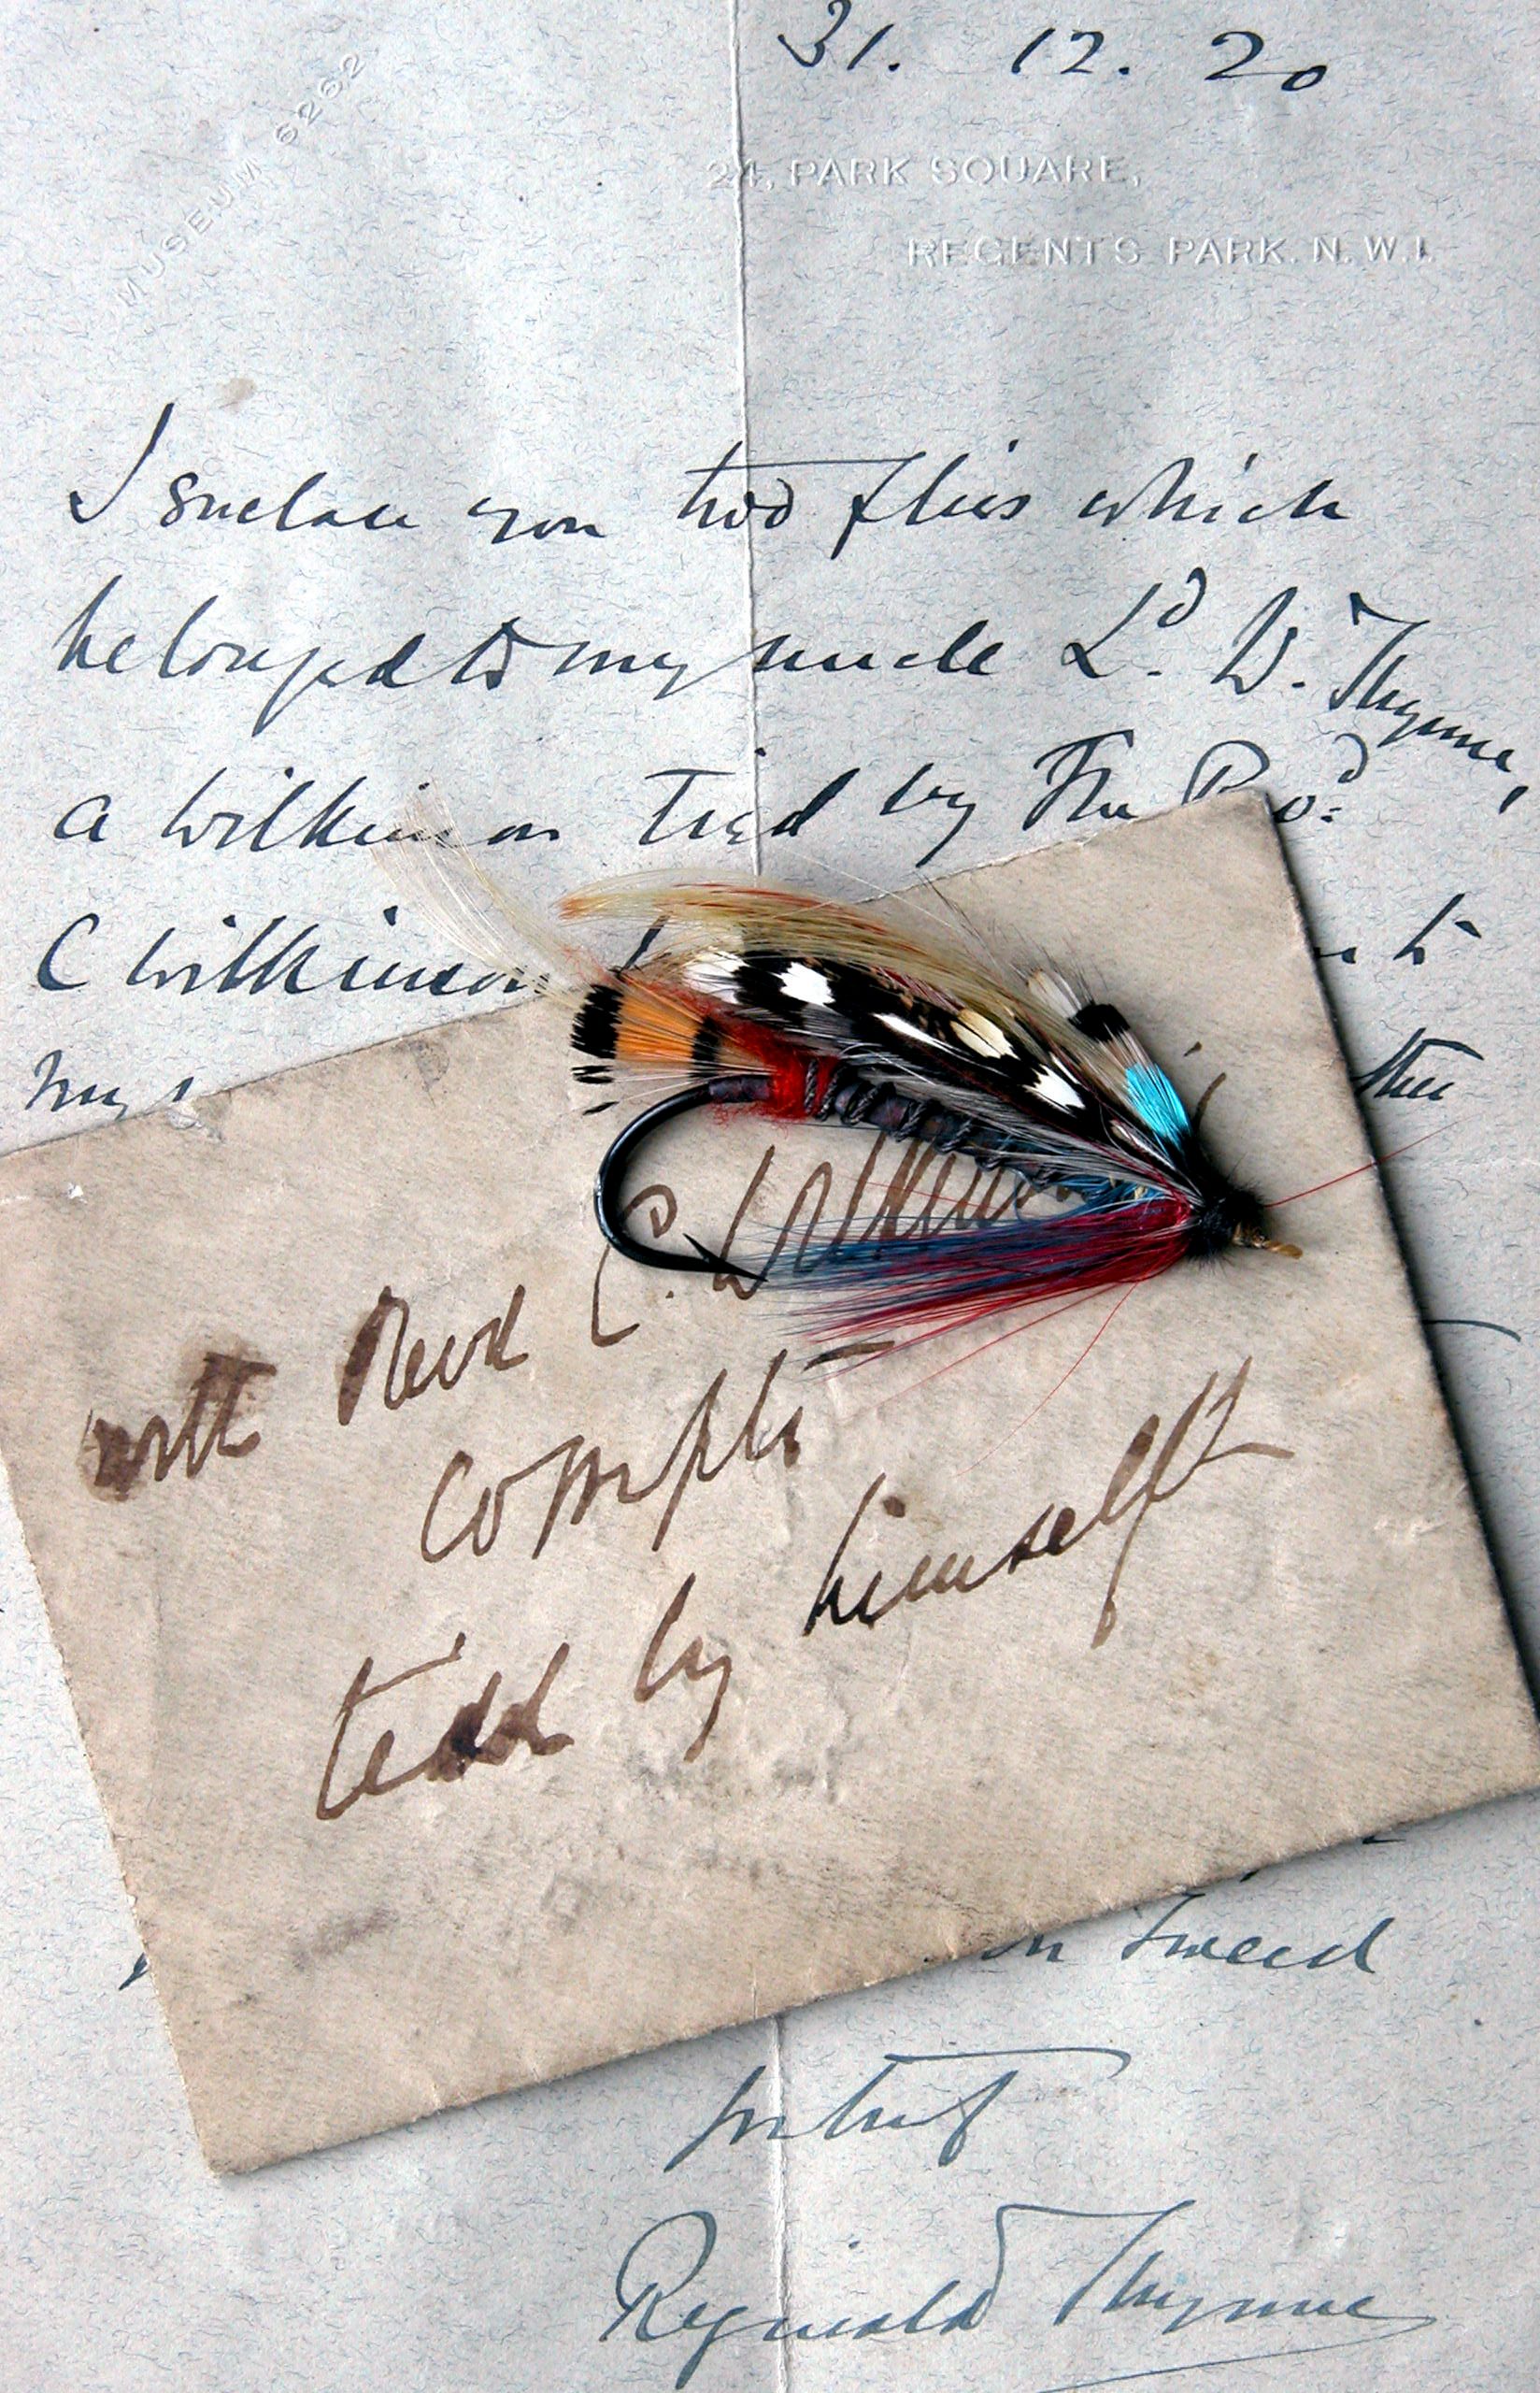 31. 12. 20
MUSEUM 6262
24, PARK SQUARE,
REGENTS PARK. N.W.1.
I enclose you two flies which
belonged to my uncle Ld. W. Thynne,
a Wilkinson tied by The Rev
C Wilkinson
my
then
with Revd C. Wilkinson
compts
tied by himself
on Tweed
Reginald Thynne